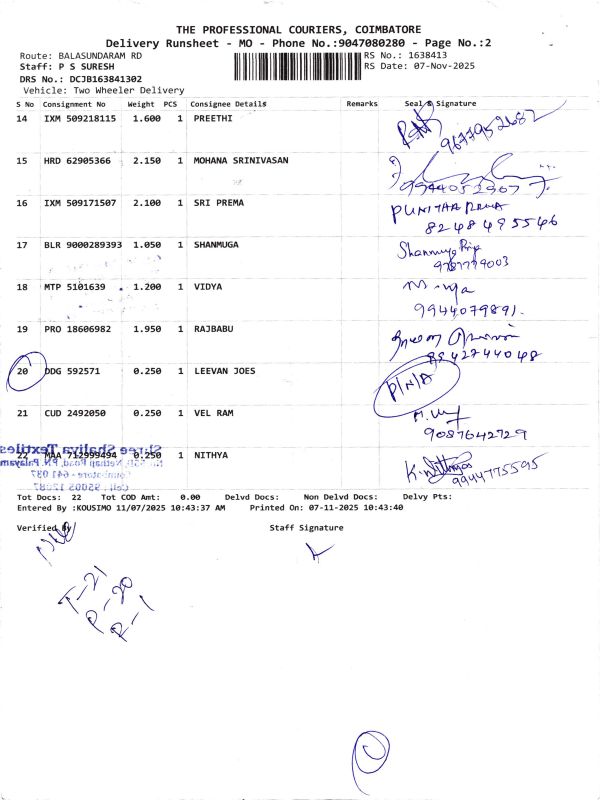 THE PROFESSIONAL COURIERS, COIMBATORE
Delivery Runsheet - MO - Phone No.:9047080280 - Page No.:2
Route: BALASUNDARAM RD RS No.: 1638413
Staff: P S SURESH RS Date: 07-Nov-2025
DRS No.: DCJB163841302
Vehicle: Two Wheeler Delivery
S No Consignment No Weight PCS Consignee Details Remarks Seal & Signature
14 IXM 509218115 1.600 1 PREETHI
9677952682
15 HRD 62905366 2.150 1 MOHANA SRINIVASAN
9944052907
16 IXM 509171507 2.100 1 SRI PREMA PUNITHA
8248495546
17 BLR 9000289393 1.050 1 SHANMUGA Shanmuga
9787779003
18 MTP 5101639 1.200 1 VIDYA
9944079891.
19 PRO 18606982 1.950 1 RAJBABU
8942744048
20 DDG 592571 0.250 1 LEEVAN JOES P/N/A
21 CUD 2492050 0.250 1 VEL RAM
9087642729
22 MAA 712999494 0.250 1 NITHYA K. Nithya
9944775595
Shree Shaliya Textiles
Coimbatore - 641 037
Tot Docs: 22 Tot COD Amt: 0.00 Delvd Docs: Non Delvd Docs: Delvy Pts:
Entered By :KOUSIMO 11/07/2025 10:43:37 AM Printed On: 07-11-2025 10:43:40
Verified By Staff Signature
T-21
P-20
R-1